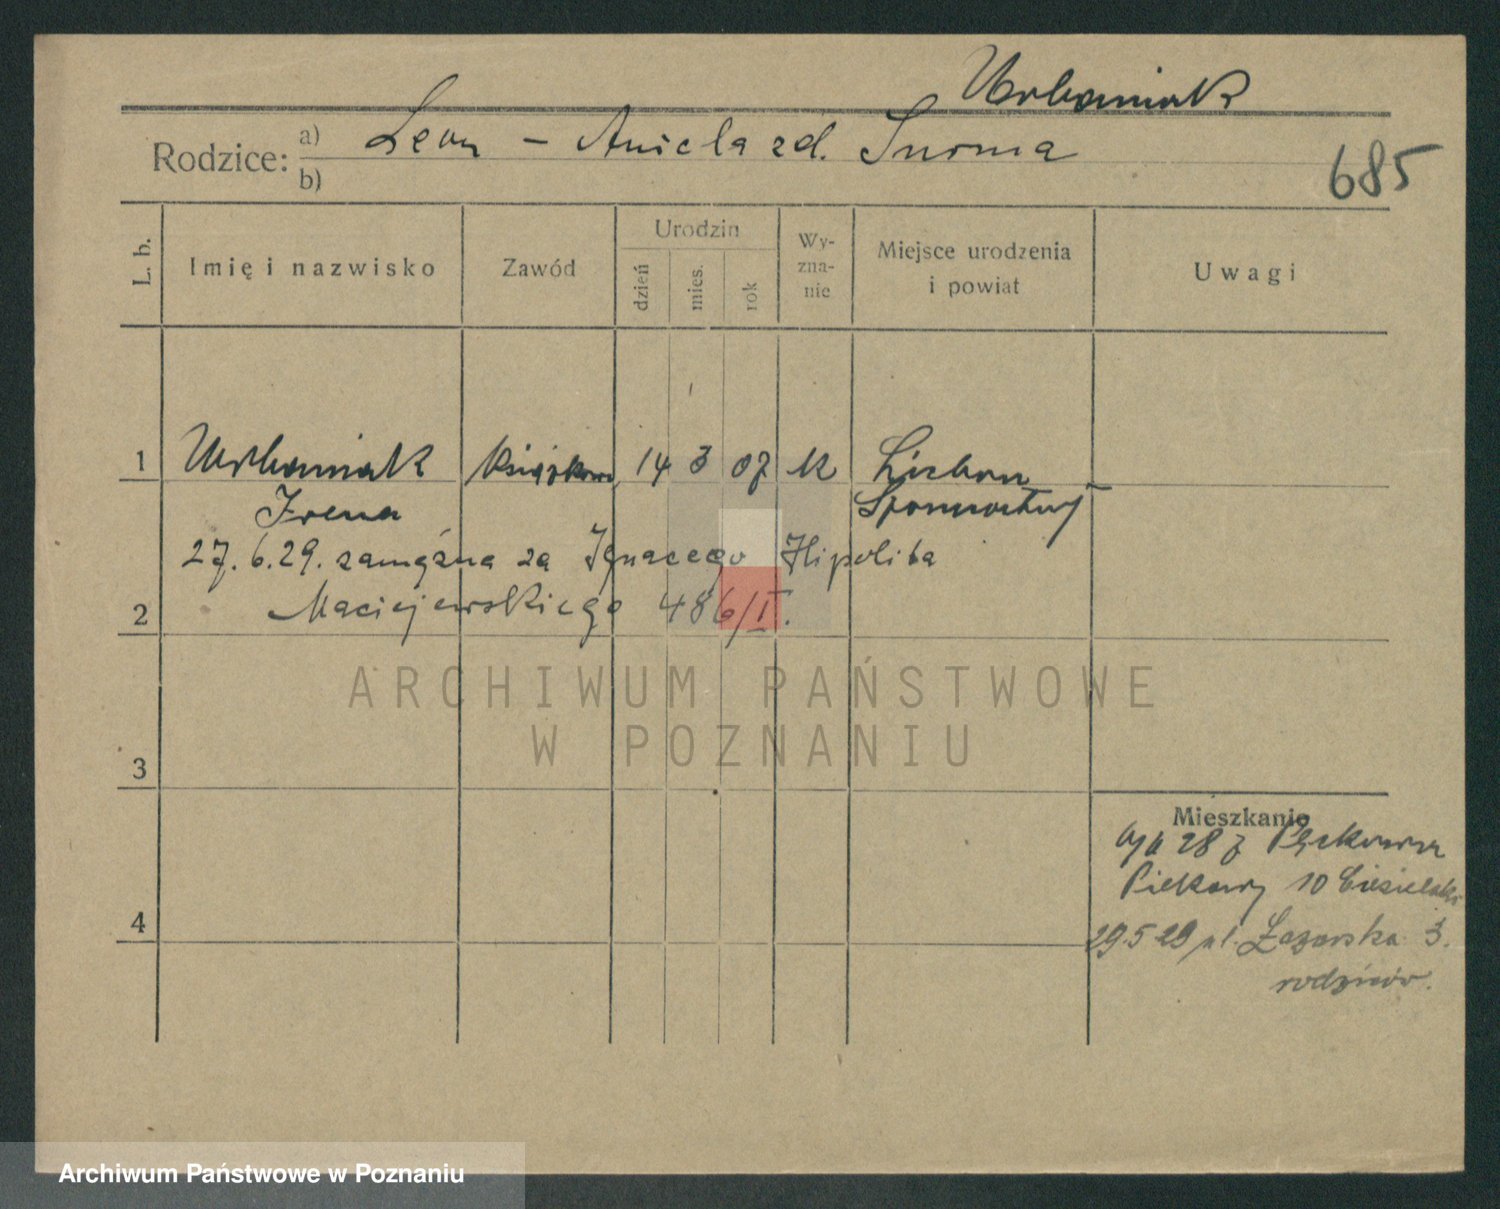 Urbaniak
Rodzice: a) Leon - Aniela zd. Surma
b)
685
L. b.
Imię i nazwisko
Zawód
Urodzin
dzień
mies.
rok
Wy-
zna-
nie
Miejsce urodzenia
i powiat
Uwagi
1 Urbaniak 14 3 07 K
Irena
27.6.29. zamężna za Ignacego Hipolita
2 Maciejewskiego 486/I.
ARCHIWUM PAŃSTWOWE
W POZNANIU
3
Mieszkanie
Piekary 10
4
29.5 29 ul. Łazarska 3.
rodziców.
Archiwum Państwowe w Poznaniu